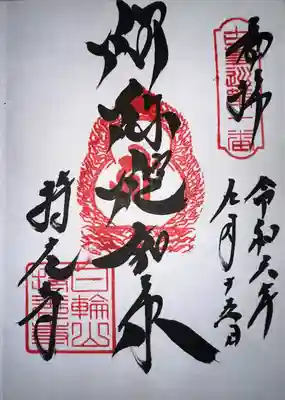 奉拝
令和六年
九月十五日
阿弥陀如来
持光寺
日輪山